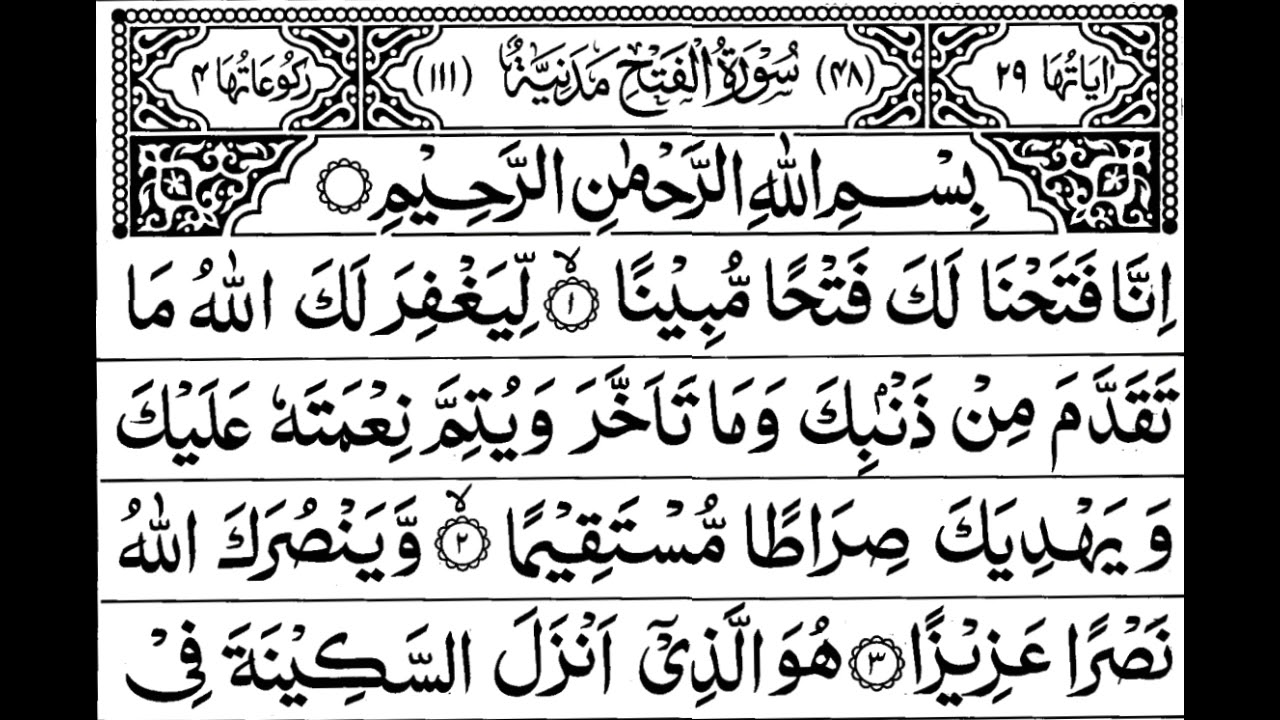 اٰيَاتُهَا ٢٩ (٤٨) سُوْرَةُ الْفَتْحِ مَدَنِيَّةٌ (١١١) رُكُوْعَاتُهَا ٤
بِسْمِ اللّٰهِ الرَّحْمٰنِ الرَّحِيْمِ
اِنَّا فَتَحْنَا لَكَ فَتْحًا مُّبِيْنًا ۙ﴿١﴾ لِّيَغْفِرَ لَكَ اللّٰهُ مَا
تَقَدَّمَ مِنْ ذَنْۢبِكَ وَمَا تَاَخَّرَ وَيُتِمَّ نِعْمَتَهٗ عَلَيْكَ
وَيَهْدِيَكَ صِرَاطًا مُّسْتَقِيْمًا ۙ﴿٢﴾ وَّيَنْصُرَكَ اللّٰهُ
نَصْرًا عَزِيْزًا ﴿٣﴾ هُوَ الَّذِيْۤ اَنْزَلَ السَّكِيْنَةَ فِيْ